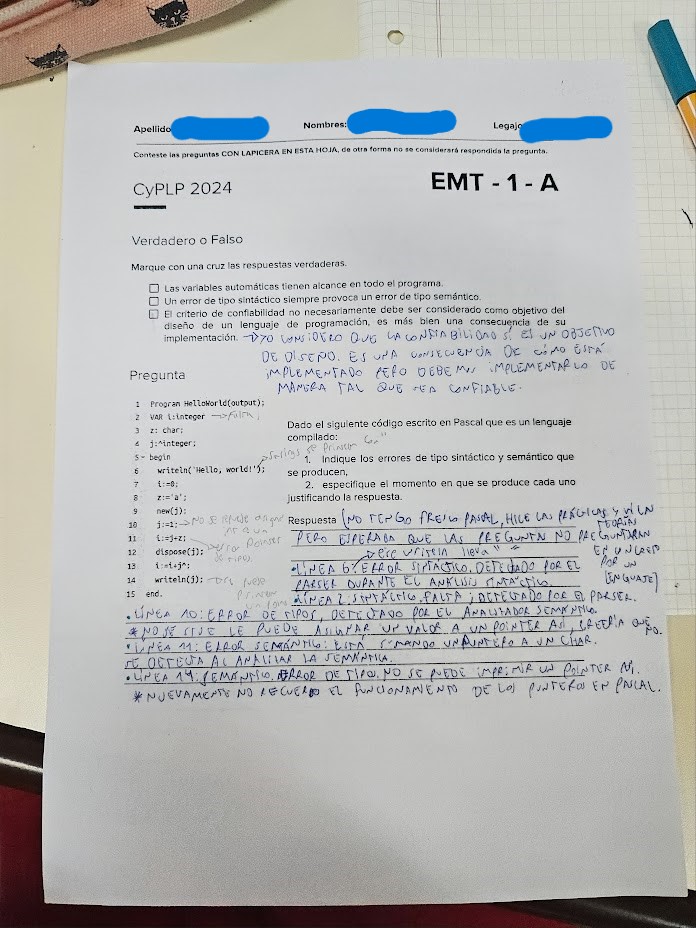 Apellido
Nombres:
Legajo
Conteste las preguntas CON LAPICERA EN ESTA HOJA, de otra forma no se considerará respondida la pregunta.
CyPLP 2024
EMT - 1 - A
Verdadero o Falso
Marque con una cruz las respuestas verdaderas.
Las variables automáticas tienen alcance en todo el programa.
Un error de tipo sintáctico siempre provoca un error de tipo semántico.
El criterio de confiabilidad no necesariamente debe ser considerado como objetivo del
diseño de un lenguaje de programación, es más bien una consecuencia de su
implementación. → YO CONSIDERO QUE LA CONFIABILIDAD SÍ ES UN OBJETIVO
DE DISEÑO. ES UNA CONSECUENCIA DE CÓMO ESTÁ
IMPLEMENTADO PERO DEBEMOS IMPLEMENTARLO DE
MANERA TAL QUE SEA CONFIABLE.
Pregunta
1 Program HelloWorld(output);
2 VAR i:integer → FALTA ;
3 z: char;
4 j:^integer;
5 begin
6 writeln('Hello, world!');
7 i:=0;
8 z:='a';
9 new(j);
10 j:=1; → NO SE PUEDE
11 i:=j+z;
12 dispose(j);
13 i:=i+j^;
14 writeln(j);
15 end.
Dado el siguiente código escrito en Pascal que es un lenguaje
compilado:
1. Indique los errores de tipo sintáctico y semántico que
se producen,
2. especifique el momento en que se produce cada uno
justificando la respuesta.
Respuesta (NO TENGO FRESCO PASCAL, HICE LAS PRÁCTICAS Y VI LA TEORÍA
PERO ESPERABA QUE LAS PREGUNTAS NO PREGUNTARAN
EN UN CASO
POR UN
LENGUAJE)
→ ese writeln lleva " "
• LÍNEA 6: ERROR SINTÁCTICO, DETECTADO POR EL
PARSER DURANTE EL ANÁLISIS SINTÁCTICO.
• LÍNEA 2: SINTÁCTICO, FALTA ; DETECTADO POR EL PARSER.
• LÍNEA 10: ERROR DE TIPOS, DETECTADO POR EL ANALIZADOR SEMÁNTICO.
* NO SE SI SE LE PUEDE ASIGNAR UN VALOR A UN POINTER ASÍ, CREERÍA QUE NO.
• LÍNEA 11: ERROR SEMÁNTICO: ESTÁ SUMANDO UN PUNTERO A UN CHAR.
SE DETECTA AL ANALIZAR LA SEMÁNTICA.
• LÍNEA 14: SEMÁNTICO. ERROR DE TIPO, NO SE PUEDE IMPRIMIR UN POINTER ASÍ.
* NUEVAMENTE NO RECUERDO EL FUNCIONAMIENTO DE LOS PUNTEROS EN PASCAL.